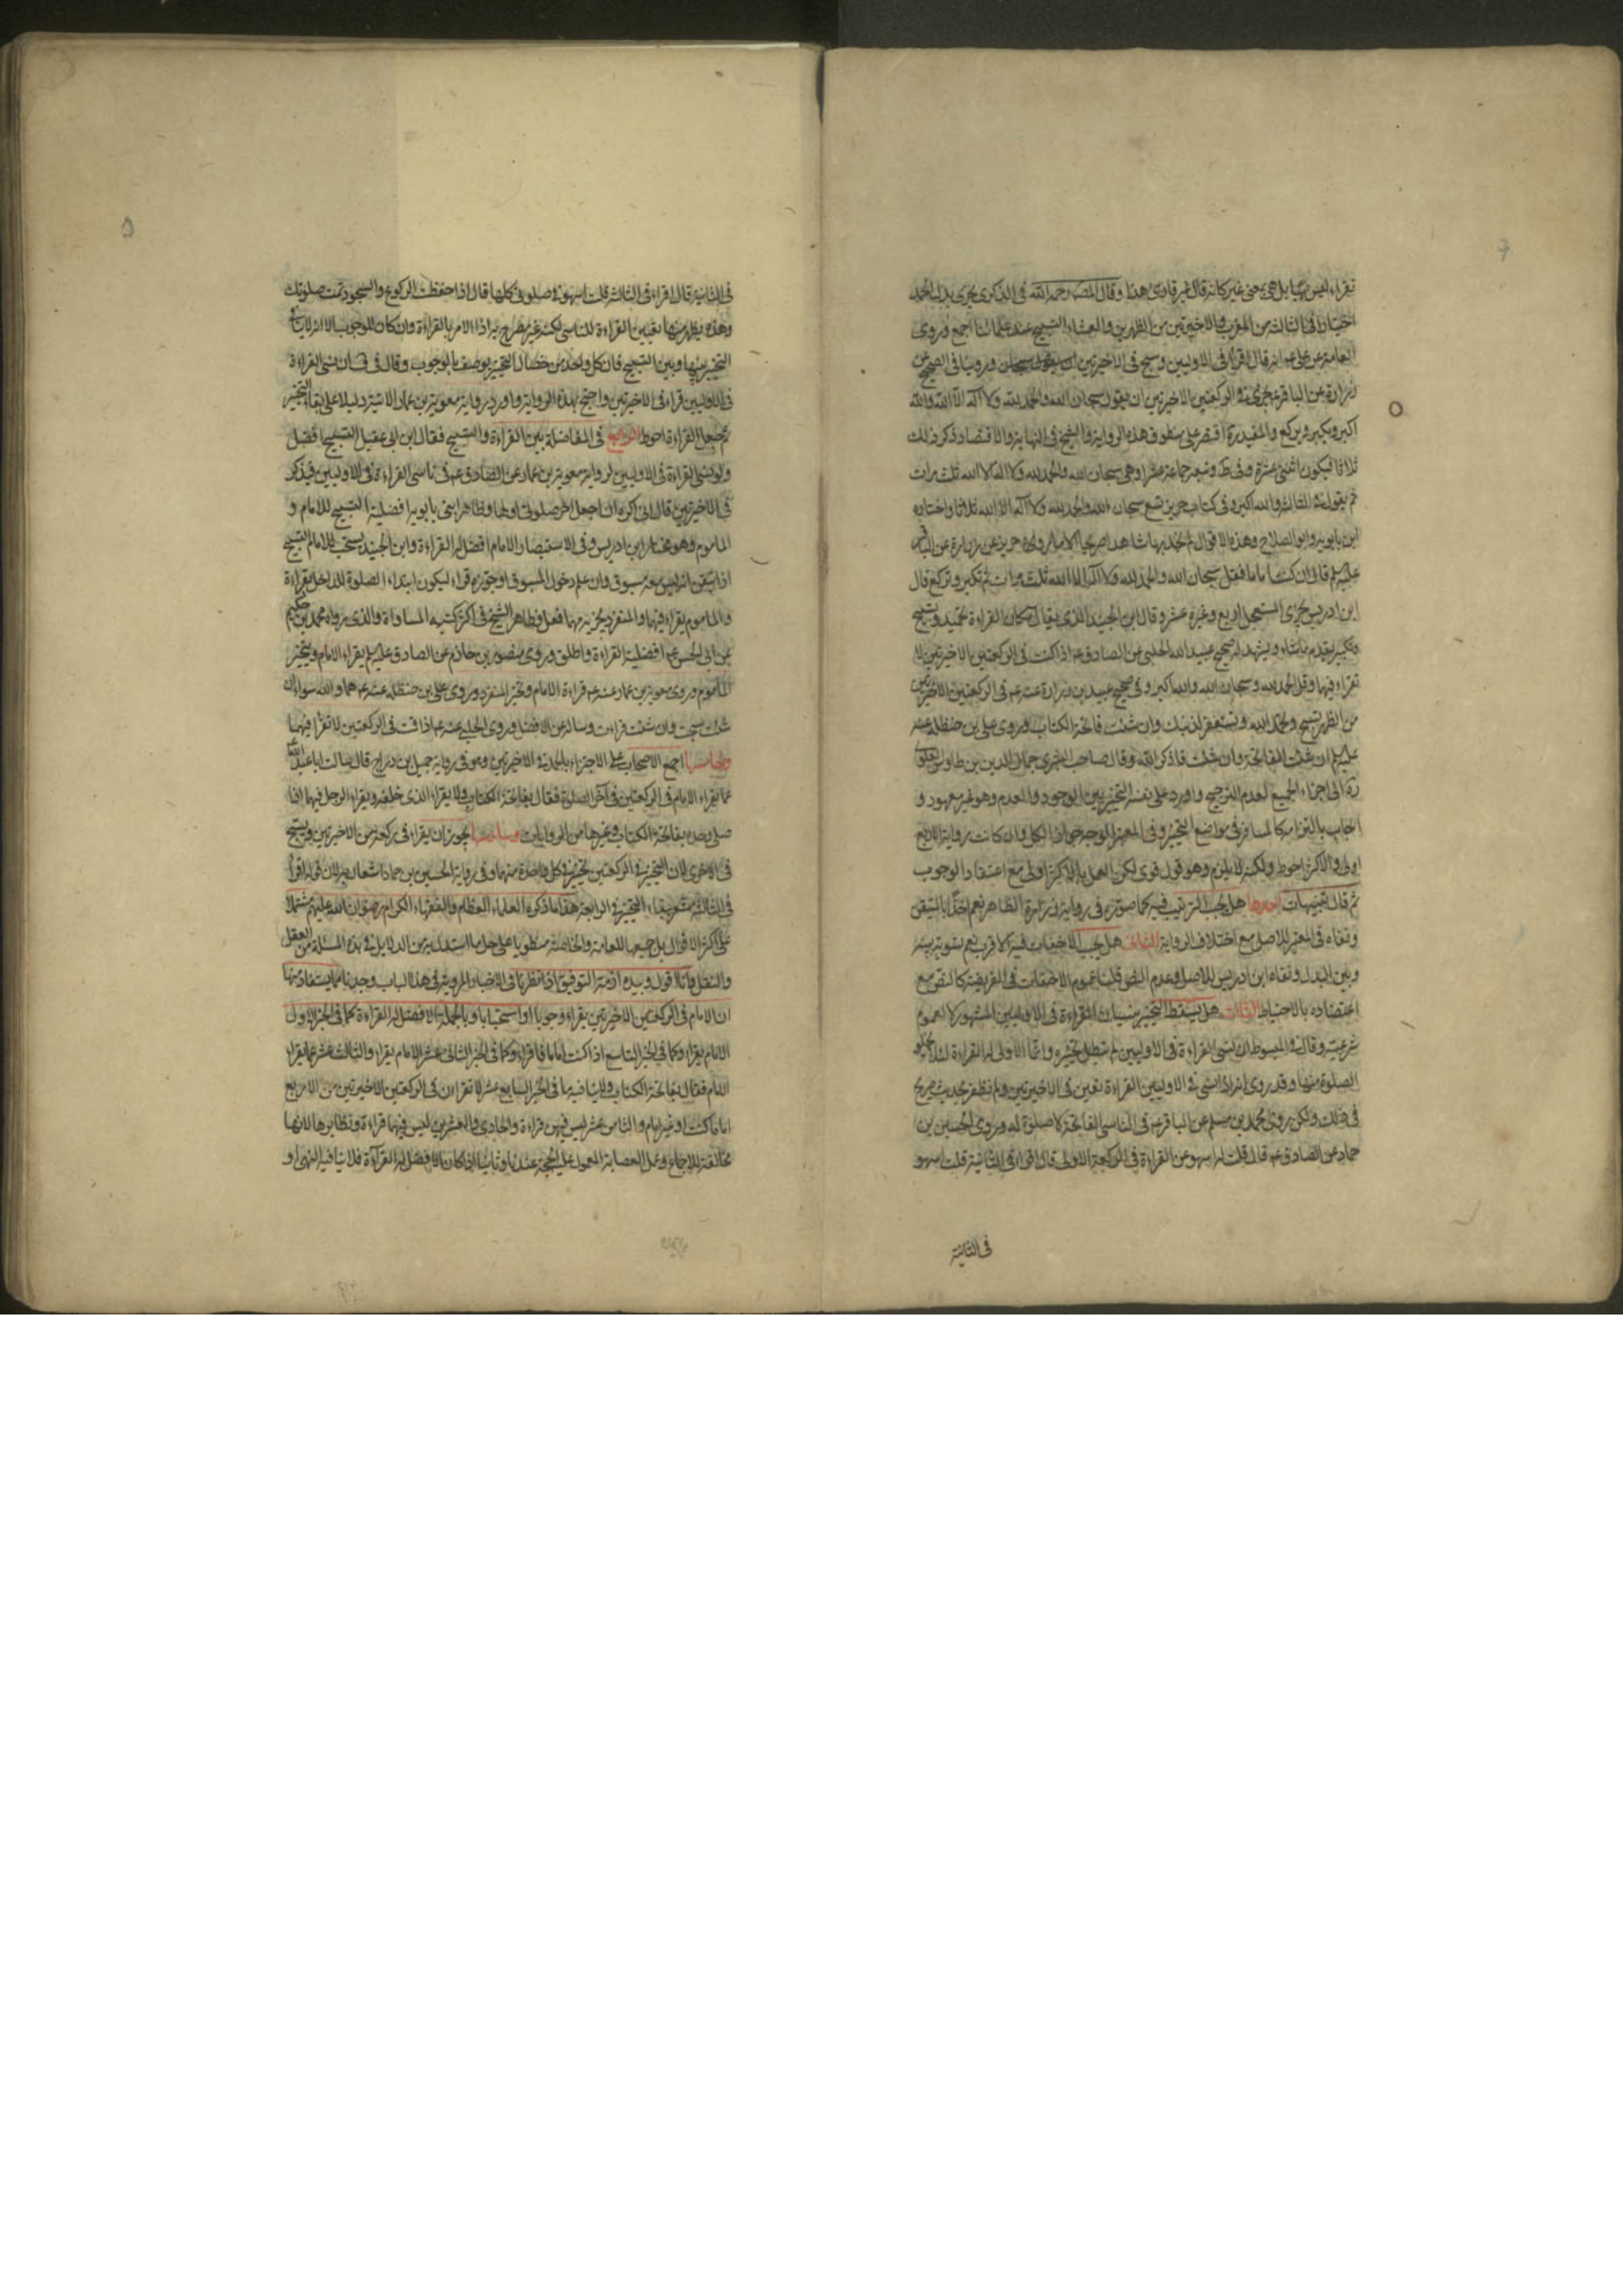 تقراء ليس نهيا بل هي بمعنى غير كانه قال غير قارئ هذا وقال رحمه الله في الذكرى يجزى بدل الحمد
اختيارا في الثالثة من المغرب والاخيرتين من الظهرين والعشاء التسبيح عند علمائنا اجمع وروى
العامة عن على عم انه قال اقرأ في الاوليين وسبح في الاخيرتين وروينا في الصحيح عن
زرارة عن الباقر عم يجزى في الركعتين الاخيرتين ان يقول سبحان الله والحمد لله ولا اله الا الله والله
اكبر ويكبر ويركع والمفيد ره اقتصر على منطوق هذه الرواية والشيخ في النهاية والاقتصاد ذكر ذلك
ثلاثا فيكون اثنى عشرة وفى ط وتبعه جماعة عشرا وهى سبحان الله والحمد لله ولا اله الا الله ثلث مرات
ثم يقول في الثالث والله اكبر وفى كتاب حريز تسع سبحان الله والحمد لله ولا اله الا الله ثلاثا واختاره
ابن بابويه وابو الصلاح وهذه الاقوال لم نجد بها شاهدا صريحا الا ما رواه حريز عن زرارة عن الباقر
عليه السلم قال ان كنت اماما فقل سبحان الله والحمد لله ولا اله الا الله ثلث مرات ثم تكبر وتركع قال
ابن ادريس يجزى المستعجل اربع وغيره عشر وقال ابن الجنيد الذى يقال مكان القراءة تحميد وتسبيح
وتكبير يقدم ما شاء ويشهد له صحيح عبيد الله الحلبى عن الصادق عم اذا كنت في الركعتين الاخيرتين لا
تقراء فيها وقل الحمد لله وسبحان الله والله اكبر وفى صحيح عبيد بن زرارة عنه عم في الركعتين الاخيرتين
من الظهر تسبح وتحمد الله وتستغفر لذنبك وان شئت فاتحة الكتاب وروى على بن حنظلة عنه
عليه السلم ان شئت الفاتحة وان شئت فاذكر الله وقال صاحب البشرى جمال الدين بن طاوس العلوى
ره الى اجزاء الجميع لعدم الترجيح واورد على نفسه التخيير بين الوجود والعدم وهو غير معهود و
اجاب بالتزامه كالمسافر في مواضع التخيير وفى المعتبر الوجه جواز الكل وان كانت رواية الاربع
اولى والاكثر احوط ولكنه لا يلزم وهو قول قوى لكن العمل بالاكثر اولى مع اعتقاد الوجوب
ثم قال تنبيهات احدها هل يجب الترتيب فيه كما صوره في رواية زرارة الظاهر نعم اخذا بالمتيقن
ونفاه في المعتبر للاصل مع اختلاف الرواية الثانى هل يجب الاخفات فيه الاقرب نعم تسوية بينه
وبين المبدل ونفاه ابن ادريس للاصل وعدم النص قلنا عموم الاخفات في الفريضة كالنص مع
اعتضاده بالاحتياط الثالث هل يسقط التخيير بنسيان القراءة في الاوليين المشهور لا لعموم
شرعيته وقال في المبسوط ان نسى القراءة في الاوليين لم تبطل تخييره وانما الاولى له القراءة لئلا يخلو
الصلوة منها وقد روى انه اذا نسى في الاوليين القراءة تعين في الاخيرتين ولم نظفر بحديث صريح
في ذلك ولكن روى محمد بن مسلم عن الباقر عم في الناسى الفاتحة لا صلوة له وروى الحسين بن
حماد عن الصادق عم قال قلت له اسهو عن القراءة في الركعة الاولى قال اقراء في الثانية قلت اسهو
في الثانية
في الثانية قال اقراء في الثالثة قلت اسهو في صلوتى كلها قال اذا حفظت الركوع والسجود تمت صلوتك
وهذه يظهر منها تعيين القراءة للناسى لكنه غير مصرح به اذ الامر بالقراءة وان كان للوجوب الا انه لا ينافى
التخيير بينها وبين التسبيح فان كل واحد من خصال التخيير يوصف بالوجوب وقال في ف ان نسى القراءة
في الاوليين قراء في الاخيرتين واحتج بهذه الرواية واورد رواية معوية بن عمار الاتية دليلا على بقاء التخيير
ثم جعل القراءة احوط الرابع في المفاضلة بين القراءة والتسبيح فقال ابن ابى عقيل التسبيح افضل
ولو نسى القراءة في الاوليين لرواية معوية بن عمار عن الصادق عم في ناسى القراءة في الاوليين فيذكر
في الاخيرتين قال انى اكره ان اجعل اخر صلوتى اولها وظاهر ابنى بابويه افضلية التسبيح للامام و
الماموم وهو مختار ابن ادريس وفى الاستبصار الامام افضل له القراءة وابن الجنيد يستحب للامام التسبيح
اذا تيقن انه ليس معه مسبوق وان علم دخول المسبوق او جوزه قراء ليكون ابتداء الصلوة للداخل بقراءة
والماموم يقراء فيهما والمنفرد يجزيه مهما فعل وظاهر الشيخ في اكثر كتبه المساواة والذى رواه محمد بن حكيم
عن ابى الحسن عم افضلية القراءة واطلق وروى منصور بن حازم عن الصادق عليه السلم يقراء الامام ويتخير
الماموم وروى معوية بن عمار عنه عم قراءة الامام وتخير المنفرد وروى على بن حنظلة عنه عم هما والله سواء ان
شئت سبحت وان شئت قراءت وساله عن الافضل وروى الحلبى عنه عم اذا قمت في الركعتين لا تقراء فيهما
وخامسها اجمع الاصحاب على الاجتزاء بالحمد في الاخيرتين وهو في رواية جميل بن دراج قال سالت ابا عبد الله
عما يقراء الامام في الركعتين في اخر الصلوة فقال بفاتحة الكتاب ولا يقراء الذى خلفه ويقراء الرجل فيهما اذا
صلى وحده بفاتحة الكتاب وغيرها من الروايات وسادسها يجوز ان يقراء في ركعة من الاخيرتين ويسبح
في الاخرى لان التخيير في الركعتين تخيير في كل واحدة منهما وفى رواية الحسين بن حماد اشعار به لان قوله اقراء
في الثالثة مشعر ببقاء التخيير في الرابعة هذا ما ذكره العلماء العظام والفقهاء الكرام رضوان الله عليهم مشتملا
على اكثر الاقوال بل جميعها للعامة والخاصة منطويا على جل ما استدل به من الدلايل في هذه المسئلة من العقل
والنقل وانا اقول وبيده ازمة التوفيق اذا نظرنا في الاخبار المروية في هذا الباب وجدنا ما يستفاد منها
ان الامام في الركعتين الاخيرتين يقراء وجوبا او استحبابا وبالجملة الافضل له القراءة كما في الخبر الاول
الامام يقراء وكما في الخبر التاسع اذا كنت اماما فاقراء وكما في الخبر الثانى عشر الامام يقراء والثالث عشر عما يقراء
الامام فقال بفاتحة الكتاب ولا ينافيه ما في الخبر السابع عشر لا تقراءن في الركعتين الاخيرتين من الاربع
اماما كنت او غير امام والثامن عشر ليس فيهن قراءة والحادى والعشرين ليس فيهما قراءة ونظايرها لانها
مخالفة للاجماع وعمل العصابة المعول عليه الحجة عندنا وثانيا اذا كان الافضل له القراءة فلا ينافيه النهى او